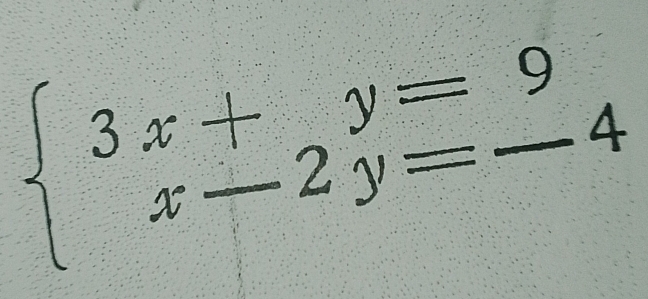 3x + y = 9
x - 2y = -4